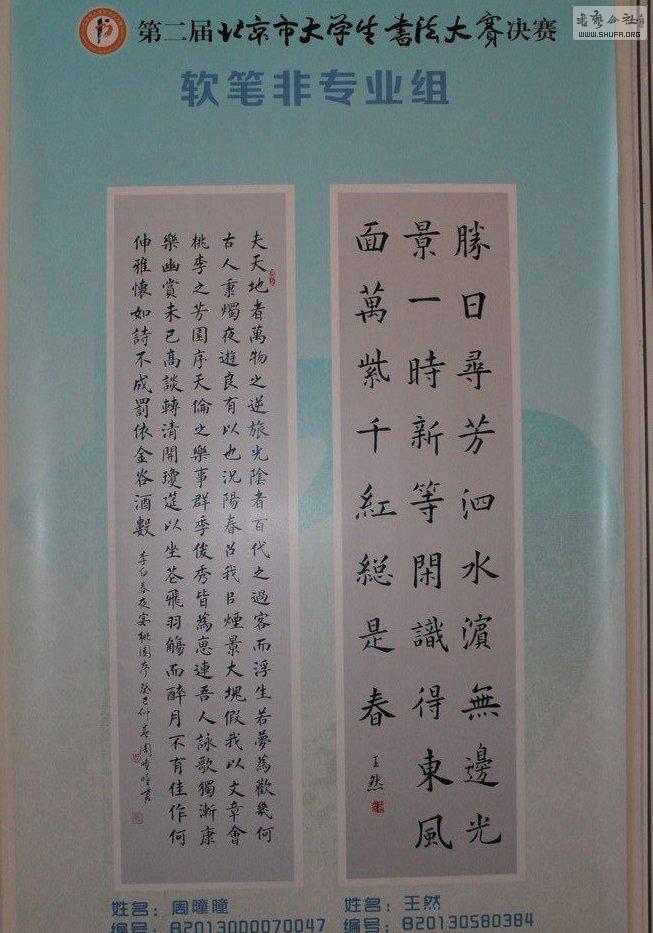 第二届北京市大学生书法大赛决赛
WWW.SHUFA.ORG
软笔非专业组
勝日尋芳泗水濵無邊光
景一時新等閑識得東風
面萬紫千紅総是春
王然
夫天地者萬物之逆旅光陰者百代之過客而浮生若夢為歡幾何
古人秉燭夜遊良有以也況陽春召我以煙景大塊假我以文章會
桃李之芳園序天倫之樂事群季俊秀皆為惠連吾人詠歌獨漸康
樂幽賞未已高談轉清開瓊筵以坐花飛羽觴而醉月不有佳作何
伸雅懷如詩不成罰依金谷酒數
李白春夜宴桃園序癸巳仲春周瞳瞳書
姓名：周瞳瞳
编号：82013000070047
姓名：王然
编号：820130580384